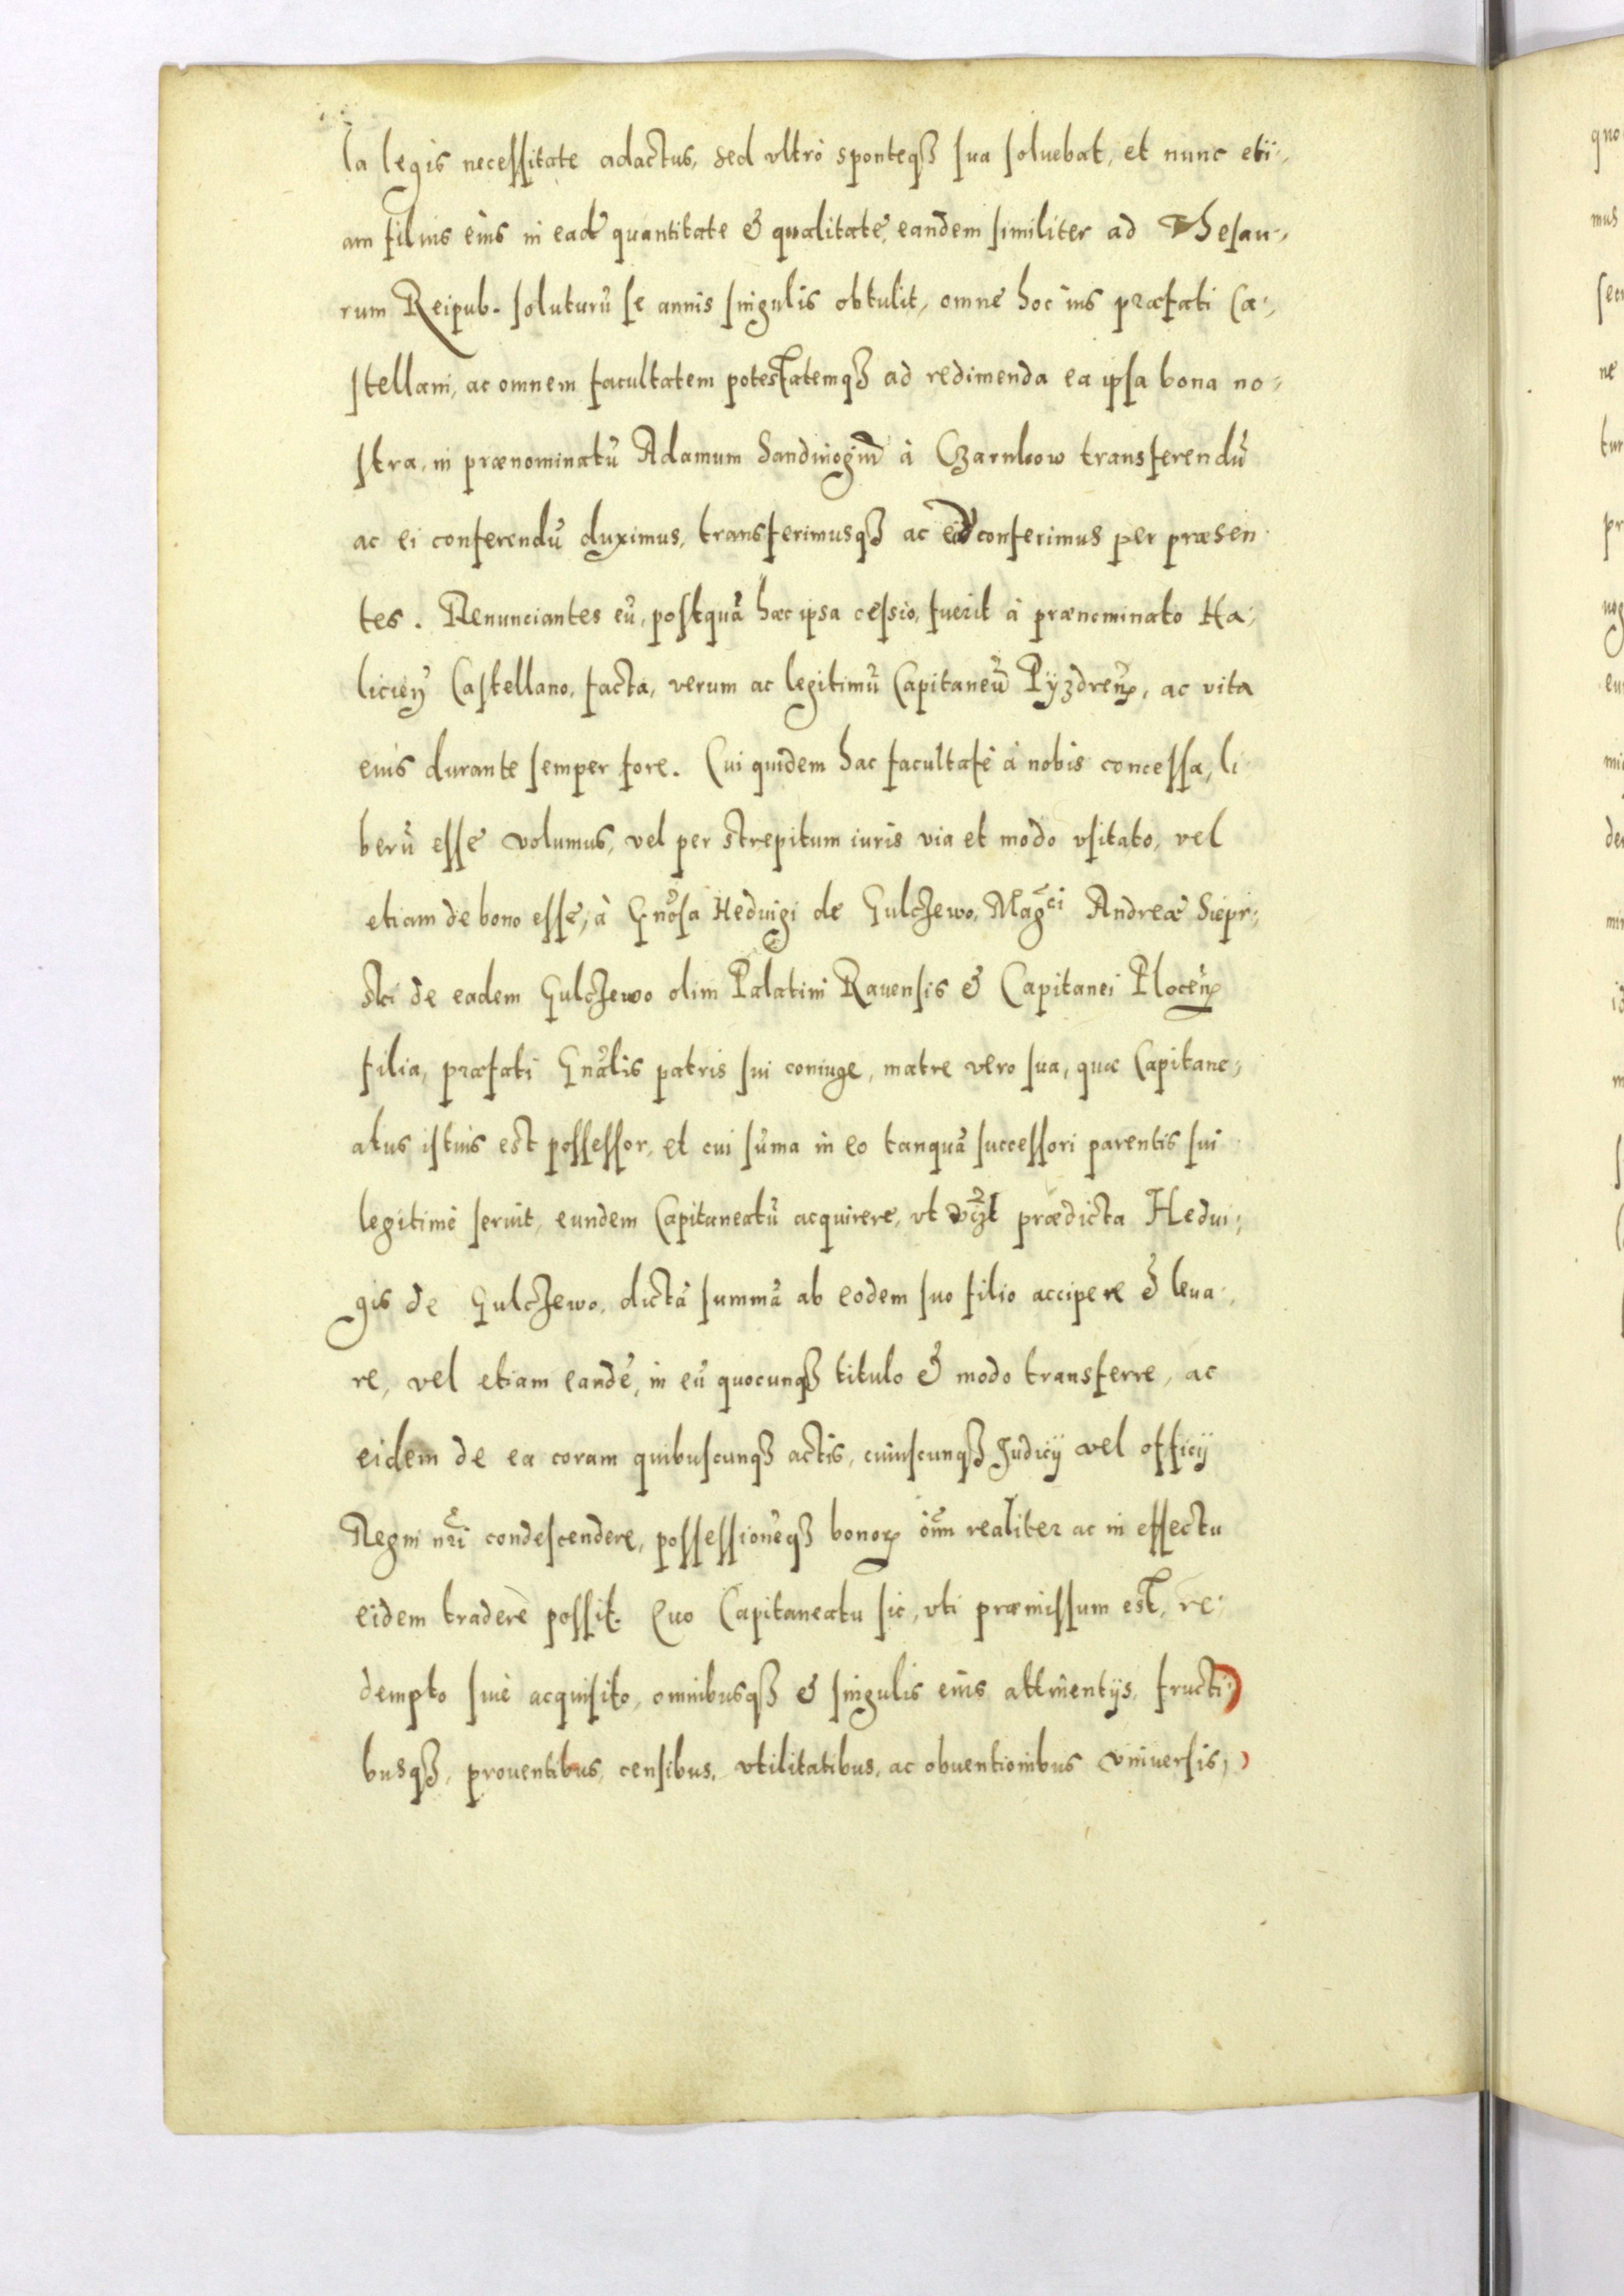 la legis necessitate adactus, sed vltrò sponteqȝ sua soluebat, et nunc eti-
am filius eius in eadē quantitate & qualitate, eandem similiter ad Thesau-
rum Reipub. soluturū se annis singulis obtulit, omne hoc ius præfati Ca-
stellani, ac omnem facultatem potestatemqȝ ad redimenda ea ipsa bona no-
stra, in prænominatū Adamum Sandiuogiū à Czarnkow transferendū
ac ei conferendū duximus, transferimusqȝ ac conferimus per præsen
tes. Renunciantes eū, postquā hæc ipsa cessio, fuerit à prænominato Ha-
licień Castellano, facta, verum ac legitimū Capitaneū Pÿzdreñ, ac vita
eius durante semper fore. Cui quidem hac facultate à nobis concessa, li
berū esse volumus, vel per strepitum iuris via et modo vsitato, vel
etiam de bono esse, à Gnōsa Heduigi de Gulczewo, Mag̃ci Andreæ Siepr-
ski de eadem Gulczewo olim Palatini Rauensis & Capitanei Ploceñ
filia, præfati Gnālis patris sui coniuge, matre vero sua, quæ Capitane-
atus istius est possessor, et cui sūma in eo tanquā successori parentis sui
legitimè seruit, eundem Capitaneatū acquirere, vt prædicta Hedui-
gis de Gulczewo, dictā summā ab eodem suo filio accipere & leua-
re, vel etiam eandē, in eū quocunqȝ titulo & modo transferre, ac
eidem de ea coram quibuscunqȝ actis, cuiuscunqȝ Judicÿ vel officÿ
Regni nr̃i condescendere, possessionēqȝ bonoꝝ oīum realiter ac in effectu
eidem tradere possit. Quo Capitaneatu sic, vti præmissum est, re-
dempto siuè acquisito, omnibusqȝ & singulis eius attinentÿs, fructi-
busqȝ, prouentibus, censibus, vtilitatibus, ac obuentionibus vniuersis,